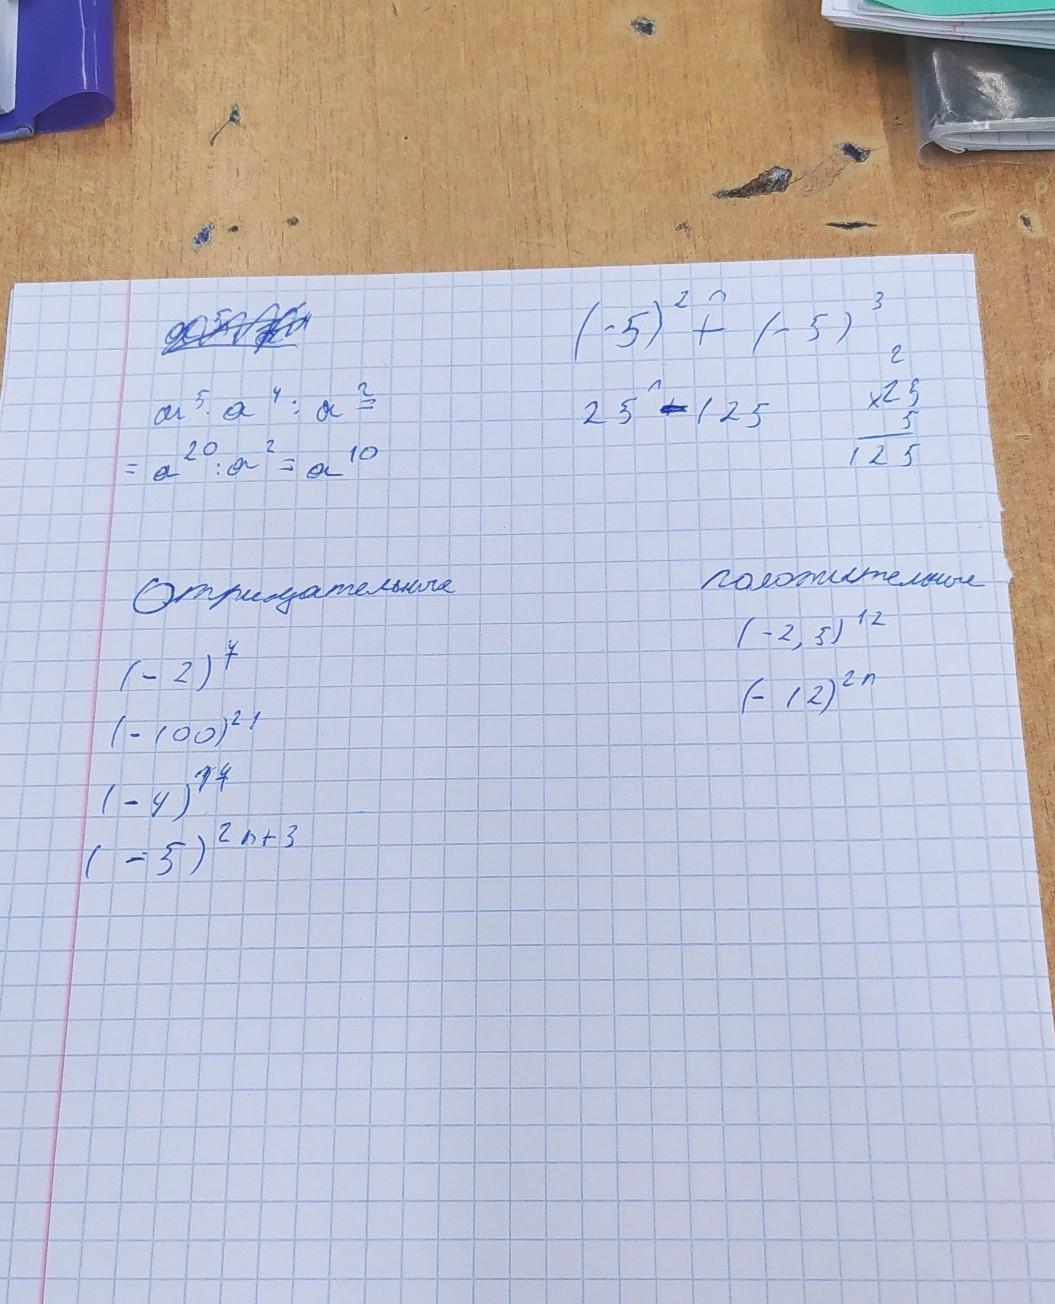 (-5)² + (-5)³
a⁵ · a⁴ : a² =
= a²⁰ : a² = a¹⁰
25 - 125
2
×25
5
125
Отрицательные
(-2)⁷
(-100)²¹
(-4)¹⁷
(-5)²ⁿ⁺³
положительные
(-2,5)¹²
(-12)²ⁿ